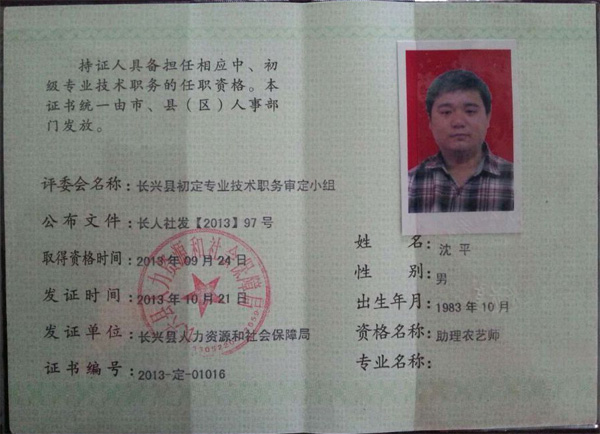 持证人具备担任相应中、初
级专业技术职务的任职资格。本
证书统一由市、县（区）人事部
门发放。
评委会名称：长兴县初定专业技术职务审定小组
公布文件：长人社发【2013】97号
取得资格时间：2013年09月24日
发证时间：2013年10月21日
发证单位：长兴县人力资源和社会保障局
证书编号：2013-定-01016
姓名：沈平
性别：男
出生年月：1983年10月
资格名称：助理农艺师
专业名称：
人力资源和社会保障局